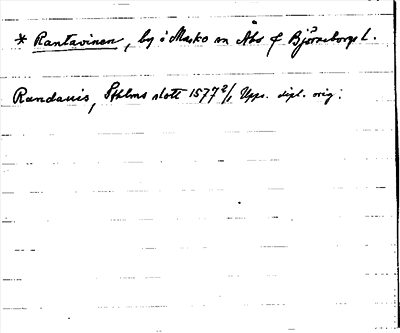 * Rantavinen, by i Masko sn Åbo o Björneborgs l.
Randauis, Sthlms slott 1577 2/1 Upps. dipl. orig: